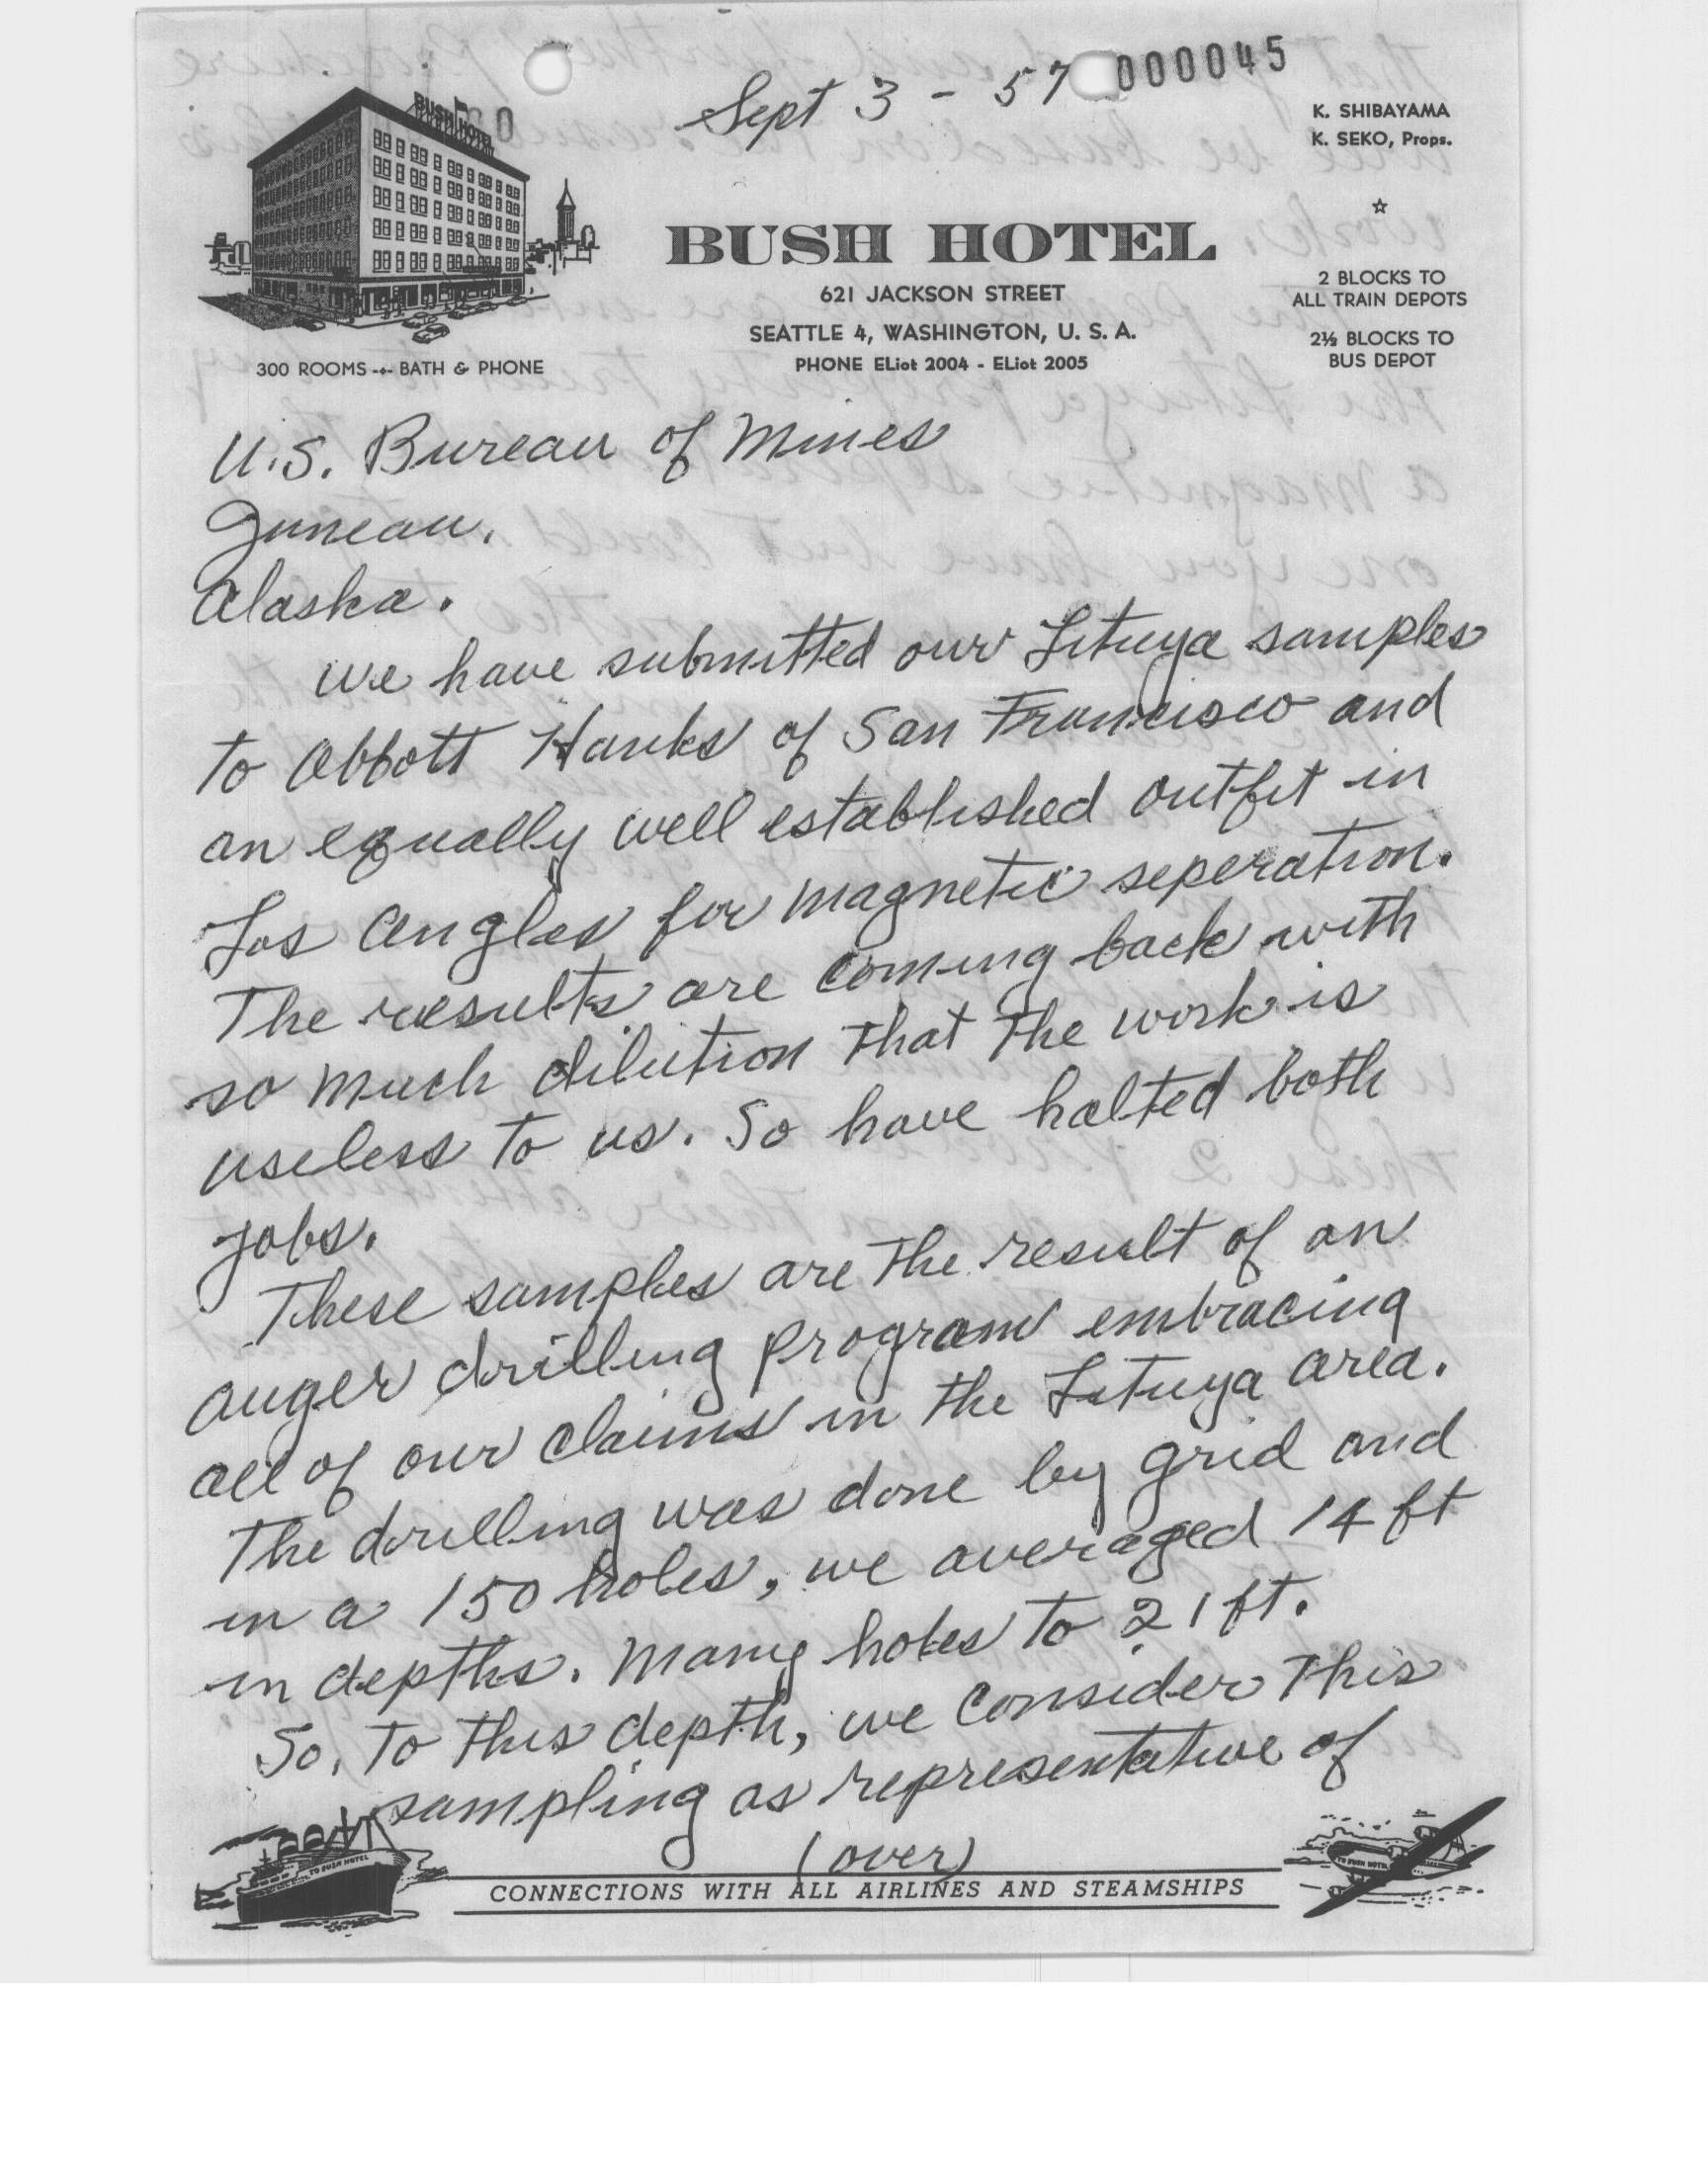 Sept 3 - 57
000045
BUSH HOTEL
K. SHIBAYAMA
K. SEKO, Props.
BUSH HOTEL
621 JACKSON STREET
SEATTLE 4, WASHINGTON, U. S. A.
PHONE ELiot 2004 - ELiot 2005
2 BLOCKS TO
ALL TRAIN DEPOTS
2½ BLOCKS TO
BUS DEPOT
300 ROOMS BATH & PHONE
U.S. Bureau of Mines
Juneau.
Alaska.
We have submitted our Lituya samples
to Abbott Hanks of San Francisco and
an equally well established outfit in
Los Angles for magnetic seperation.
The results are coming back with
so much dilution that the work is
useless to us. So have halted both
jobs.
These samples are the result of an
auger drilling program embracing
all of our claims in the Lituya area.
The drilling was done by grid and
in a 150 holes, we averaged 14 ft
in depths. Many holes to 21 ft.
So, to this depth, we consider this
sampling as representative of
(over)
TO BUSH HOTEL
TO BUSH HOTEL
CONNECTIONS WITH ALL AIRLINES AND STEAMSHIPS